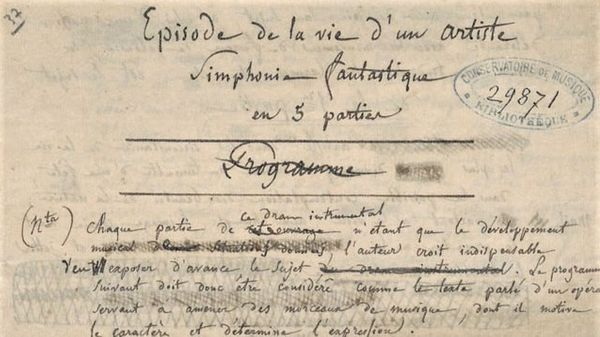 37
Episode de la vie d'un artiste
Simphonie fantastique
en 5 parties
CONSERVATOIRE DE MUSIQUE
29871
BIBLIOTHÈQUE
Programme
ce dram instrumental
(Nta) Chaque partie de n'étant que le développement
musical l'auteur croit indispensable
exposer d'avance le sujet du drame instrumental. Le programme
suivant doit donc être considéré comme le texte parlé d'un opéra
servant à amener des morceaux de musique, dont il motive
le caractère et détermine l'expression.